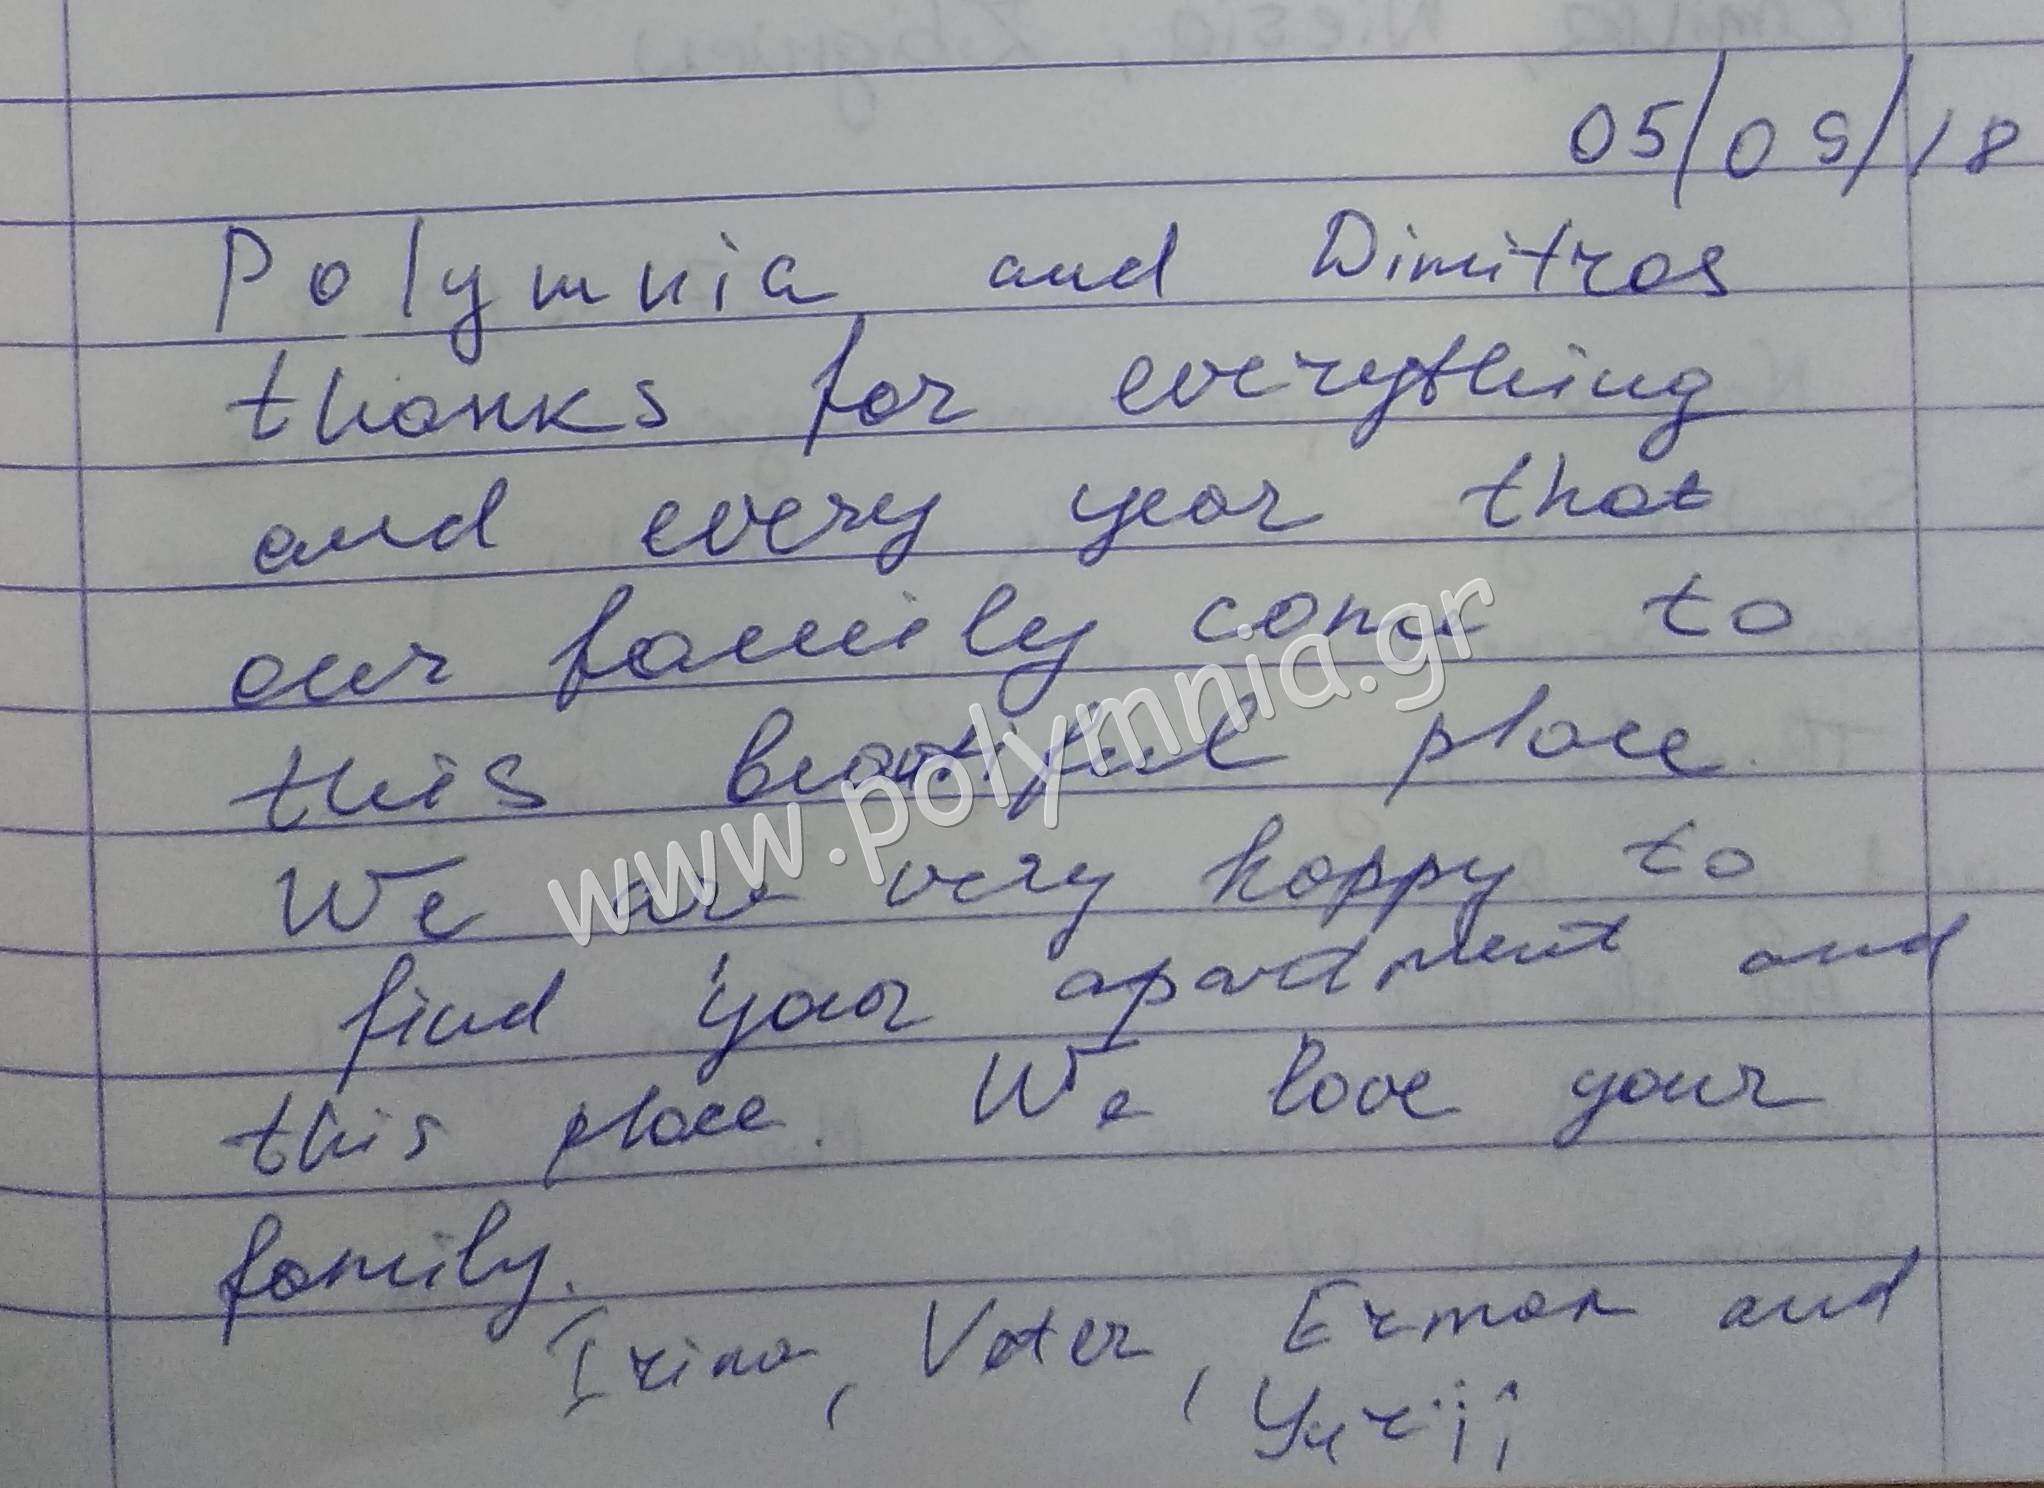 05/09/18
Polymnia and Dimitros
thanks for everything
and every year that
our family come to
this beautiful place.
We are very happy to
find your apardment and
this place. We love your
family.
Irina, Voter, Erman and
Yurii
www.polymnia.gr